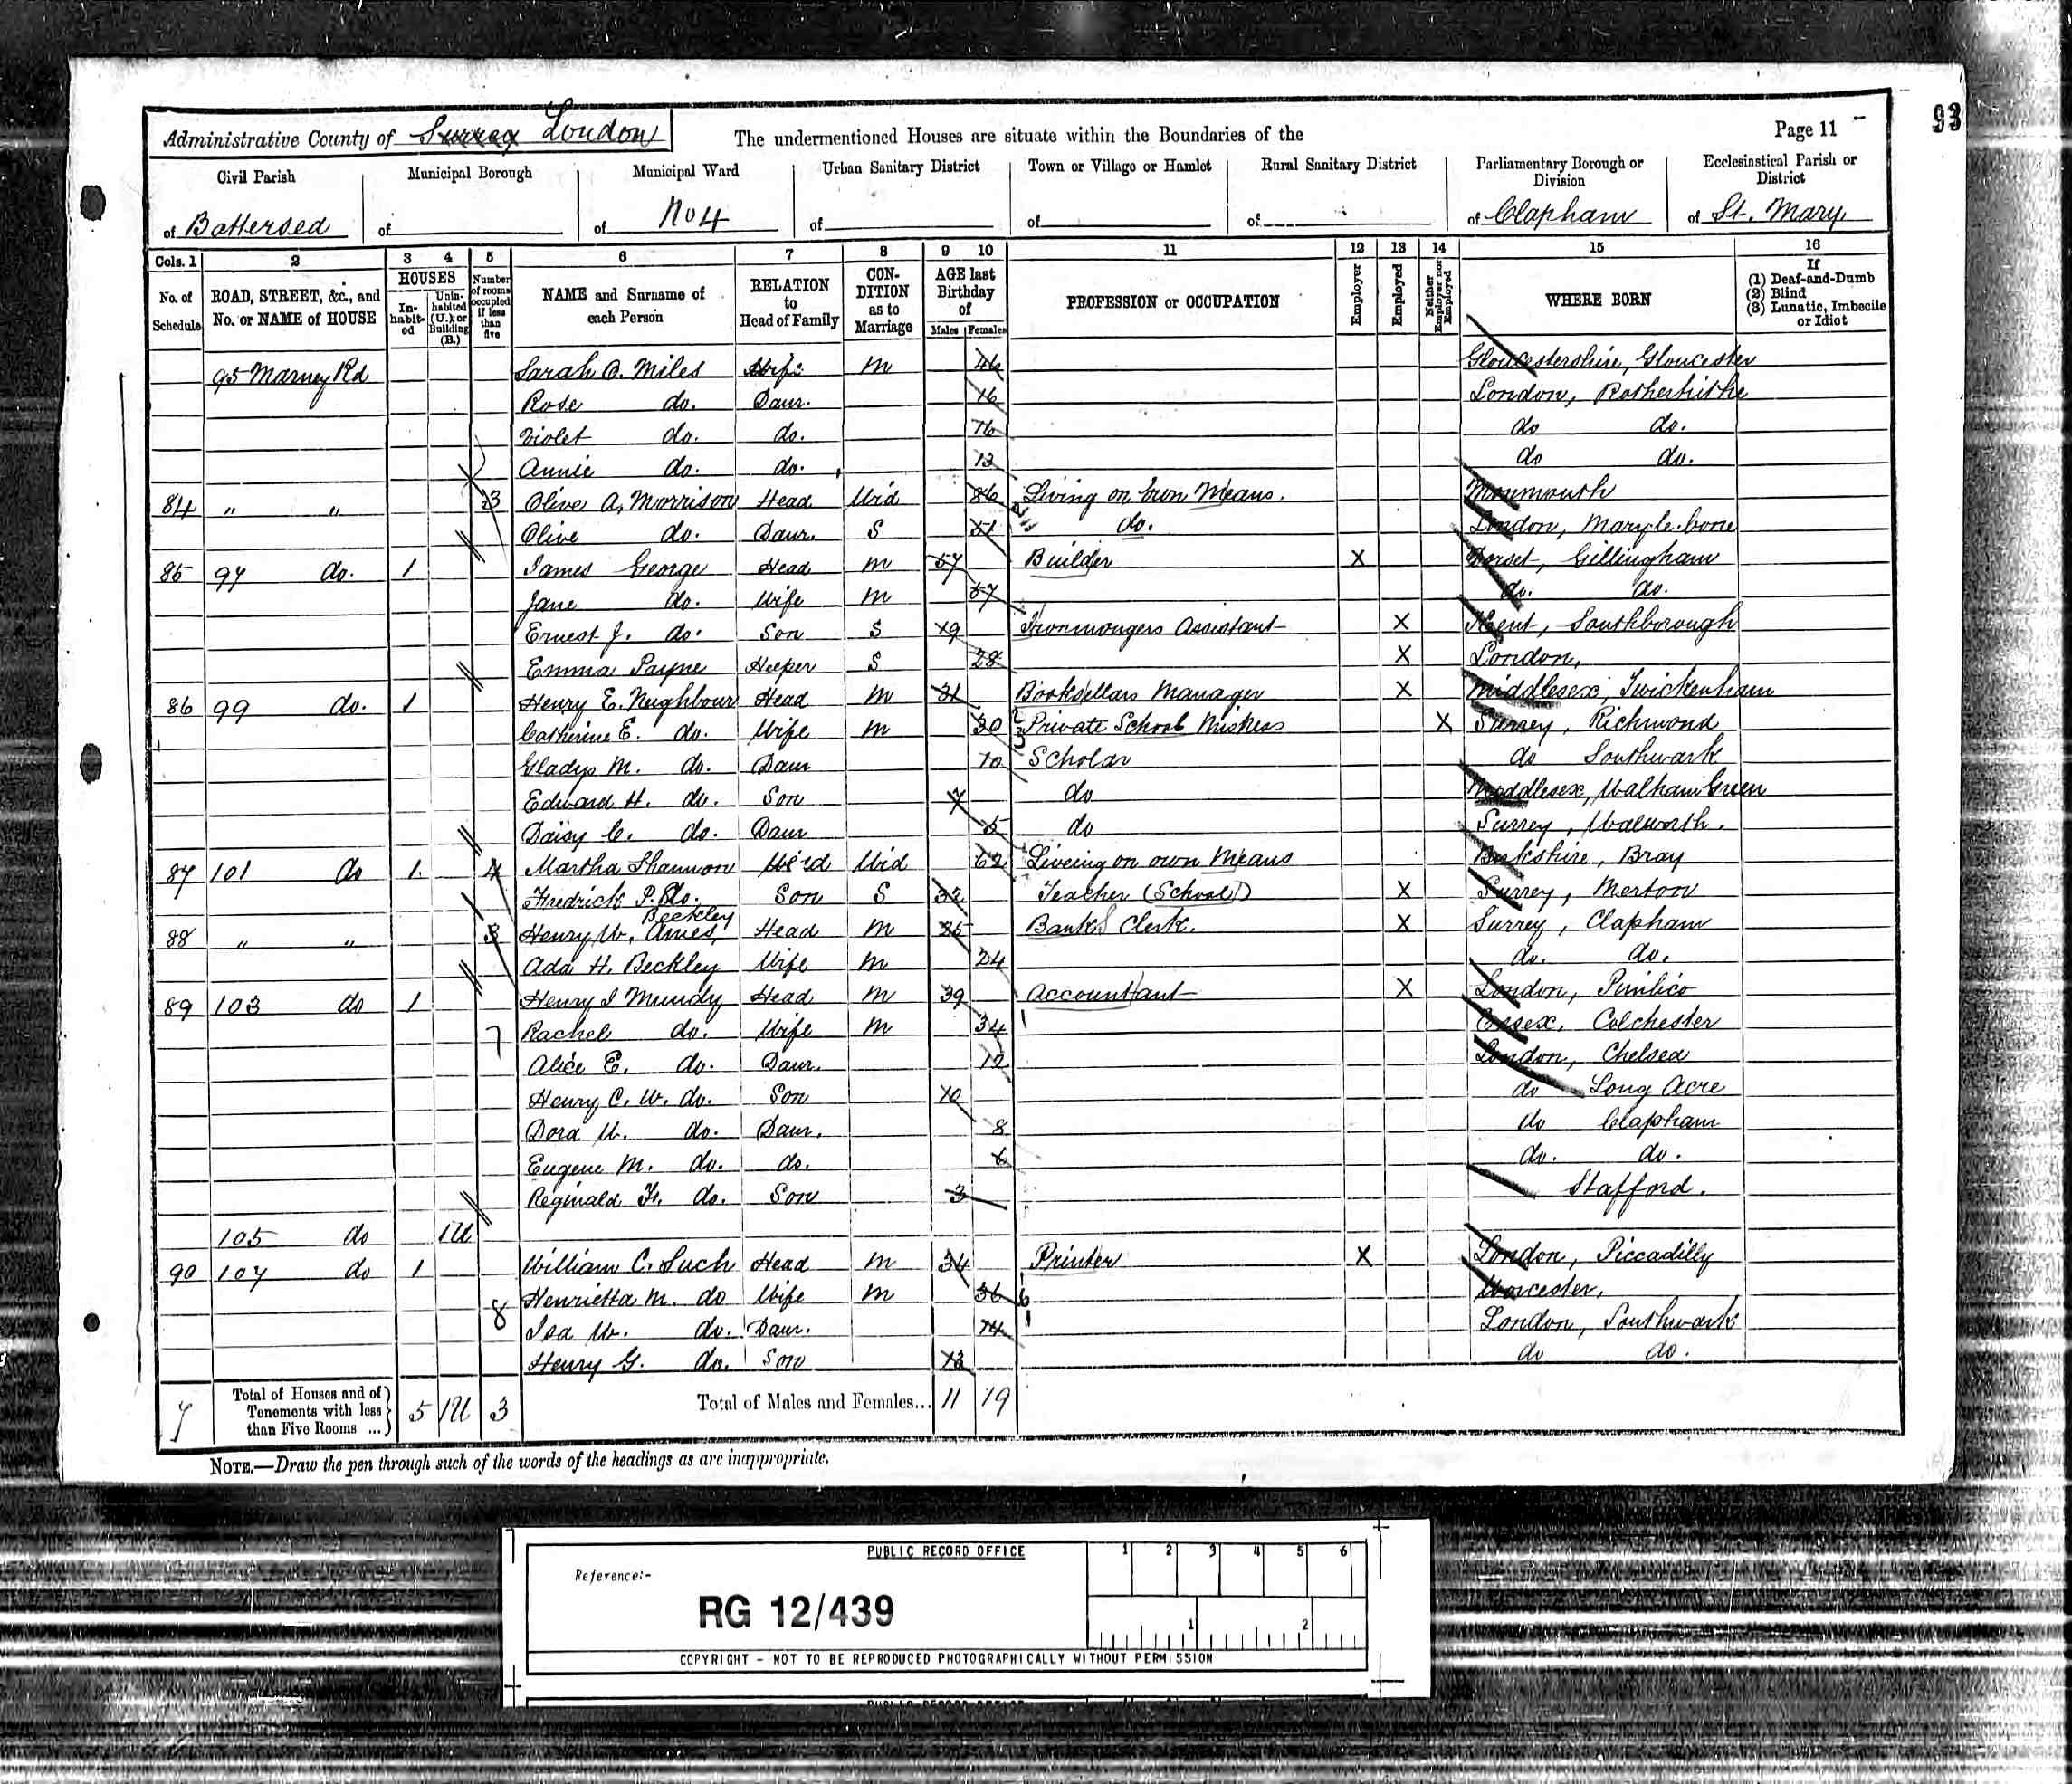 93
Administrative County of Surrey London The undermentioned Houses are situate within the Boundaries of the Page 11
Civil Parish Municipal Borough Municipal Ward Urban Sanitary District Town or Village or Hamlet Rural Sanitary District Parliamentary Borough or Division Ecclesiastical Parish or District
of Battersea of of No 4 of of of of Clapham of St. Mary
Cols. 1 2 3 4 5 6 7 8 9 10 11 12 13 14 15 16
No. of Schedule ROAD, STREET, &c., and No. or NAME of HOUSE HOUSES Inhabited Uninhabited (U.), or Building (B.) Number of rooms occupied if less than five NAME and Surname of each Person RELATION to Head of Family CONDITION as to Marriage AGE last Birthday of Males Females PROFESSION or OCCUPATION Employer Employed Neither Employer nor Employed WHERE BORN If (1) Deaf-and-Dumb (2) Blind (3) Lunatic, Imbecile or Idiot
95 Marney Rd Sarah A. Miles Wife M 46 Gloucestershire, Gloucester
Rose do. Daur. 16 London, Rotherhithe
Violet do. do. 16 do do.
Annie do. do. 13 do do.
84 " " 3 Olive A. Morrison Head Wid 86 Living on own Means. Monmouth
Olive do. Daur. S 51 do. London, Maryle-bone
85 97 do. 1 James George Head M 57 Builder X Dorset, Gillingham
Jane do. Wife M 57 do. do.
Ernest J. do. Son S 19 Ironmongers Assistant X Kent, Southborough
Emma Payne Keeper S 28 X London,
86 99 do. 1 Henry E. Neighbour Head M 31 Booksellars Manager X Middlesex, Twickenham
Catherine E. do. Wife M 30 Private School Mistress X Surrey, Richmond
Gladys M. do. Daur 10 Scholar do Southwark
Edward H. do. Son 7 do Middlesex, Walham Green
Daisy C. do. Daur 5 do Surrey, Walworth.
87 101 do 1 4 Martha Shannon Wid Wid 62 Liveing on own Means Berkshire, Bray
Fredrick P. do. Son S 32 Teacher (School) X Surrey, Merton
88 " " 3 Henry W. Ames, Beckley Head M 25 Banks Clerk. X Surrey, Clapham
Ada H. Beckley Wife M 24 do. do.
89 103 do 1 Henry J Mundy Head M 39 Accountant X London, Pimlico
7 Rachel do. Wife M 34 Essex, Colchester
Alice E. do. Daur. 12 London, Chelsea
Henry C. W. do. Son 10 do Long Acre
Dora W. do. Daur. 8 do Clapham
Eugene M. do. do. 6 do. do.
Reginald F. do. Son 3 Stafford.
105 do 1U
90 107 do 1 William C. Such Head M 34 Printer X London, Piccadilly
8 Henrietta M. do Wife M 36 Worcester,
Isa W. do. Daur. 14 London, Southwark
Henry G. do. Son 13 do do.
7 Total of Houses and of Tenements with less than Five Rooms ... 5 1U 3 Total of Males and Females... 11 19
NOTE.—Draw the pen through such of the words of the headings as are inappropriate.
PUBLIC RECORD OFFICE 1 2 3 4 5 6
Reference:-
RG 12/439
1 2
COPYRIGHT - NOT TO BE REPRODUCED PHOTOGRAPHICALLY WITHOUT PERMISSION